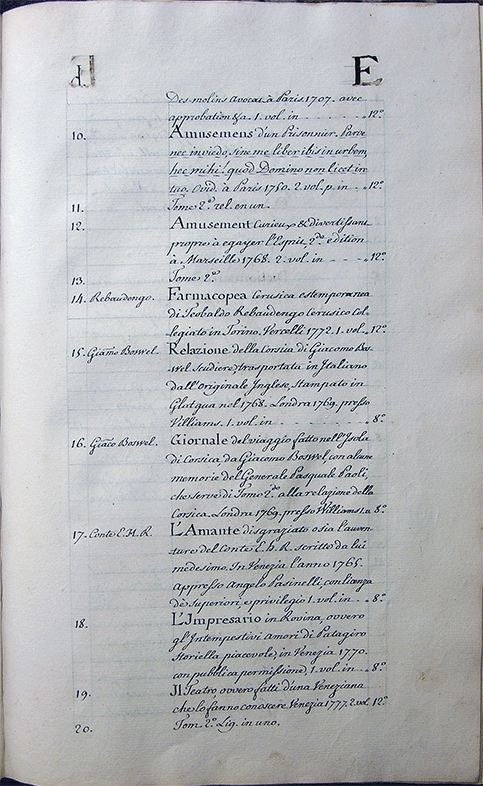 d. E
Des molins Avocat à Paris 1707. avec
approbation &a. 1. vol. in - - - - - 12.º
10. Amusemens d'un Prisonnier. Parve
nec invideo, sine me liber ibis in urbem,
hei mihi! quod Domino non licet ire
tuo. Ovid. à Paris 1750. 2. vol. p. in - - 12.º
11. Tome 2.º rel. en un.
12. Amusement Curieux & divertissant
propre à egayer l'Esprit 2.me edition
à Marseille 1768. 2. vol. in - - - 12.º
13. Tome 2.º
14. Rebaudengo. Farmacopea Cerusica estemporanea
di Teobaldo Rebaudengo Cerusico Col-
legiato in Torino. Vercelli 1772. 1. vol. - 12.º
15. Giamo Boswel. Relazione della Corsica di Giacomo Bos-
wel Scudiere, trasportata in Italiano
dall'Originale Inglese, Stampato in
Glasqua nel 1768. Londra 1769. presso
Williams. 1. vol. in - - - - - 8.º
16. Giaco Boswel. Giornale del viaggio fatto nell'Isola
di Corsica, da Giacomo Boswel, con alcune
memorie del Generale Pasquale Paoli,
che serve di Tomo 2.do alla relazione della
Corsica. Londra 1769. presso Williams 8.º
17. Conte E. H. R. L'Amante disgraziato o sia l'avven-
ture del Conte E. h. R. scritto da lui
medesimo. In Venezia l'anno 1765.
Appresso Angelo Pasinelli, con licanza
de' Superiori, e privilegio 1. vol. in - - 8.º
18. L'Impresario in Rovina, ovvero
gl'Intempestivi amori di Patagiro
Storiella piacevole, in Venezia 1770.
con pubblica permissione, 1. vol. in - - 8.º
19. Il Teatro ovvero fatti d'una Veneziana
che lo fanno conoscere Venezia 1777. 2. vol. 12.º
20. Tom. 2.º Lig. in uno.